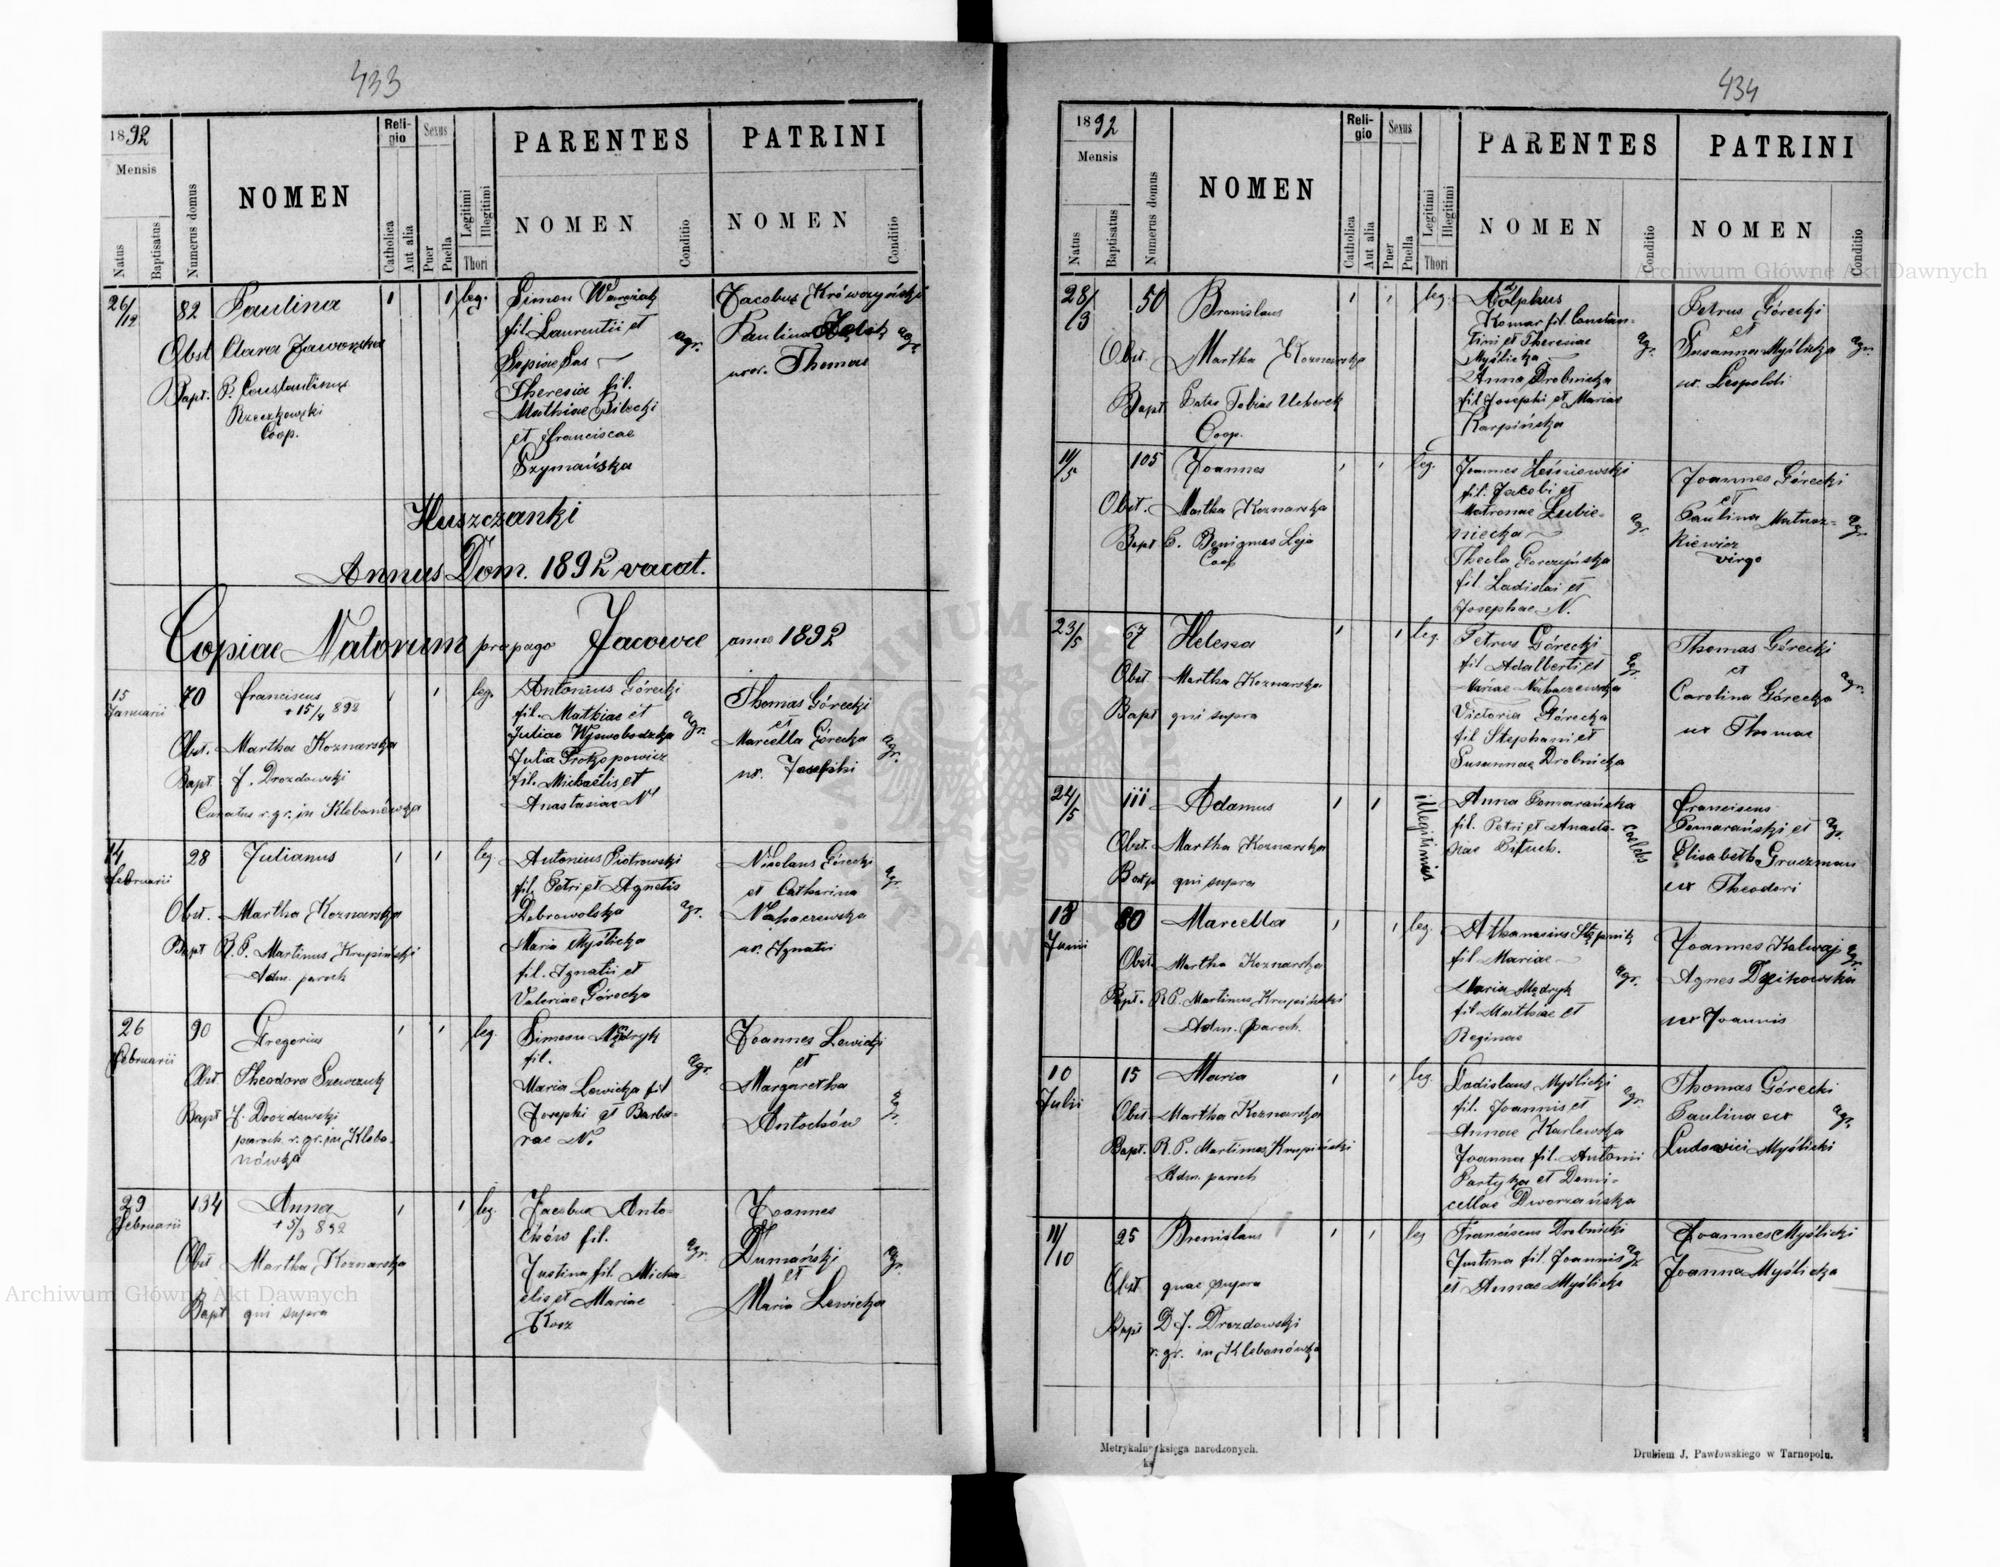 433
1892
Mensis
Natus
Baptisatus
Numerus domus
NOMEN
Religio
Catholica
Aut alia
Sexus
Puer
Puella
Legitimi
Illegitimi
Thori
PARENTES
NOMEN
Conditio
PATRINI
NOMEN
Conditio
26/12
82 Paulina
1 1 leg.
Obst. Clara Jaworska
Bapt. P. Constantinus
Rzeczkowski
Coop.
Simon
fil. Laurentii et
Sophiae Sas
Theresia fil.
Mathiae Bilecki
et Franciscae
Szymańska
agr.
Jacobus Krówczyński
Paulina
uxor. Thomae
agr.
Huszczanki
Annus Dom. 1892 vacat.
Copiae Natorum pro pago Jacowce anno 1892
15
Januarii
70 Franciscus
+ 15/4 892
leg.
Obst. Martha Koznarska
Bapt. J. Drozdowski
Curatus r. gr. in Klebanówka
Antonius Górecki
fil. Mathiae et
Juliae Wojewobodzka
Julia Prokopowicz
fil. Michaëlis et
Anastasiae N.
agr.
Thomas Górecki
et
Marcella Górecka
ux. Josephi
agr.
14
Februarii
28 Julianus
leg.
Obst. Martha Koznarska
Bapt R. P. Martinus Krupiński
Adm. paroch
Antonius Piotrowski
fil. Petri et Agnetis
Dobrowolska
Maria Myślicka
fil. Ignatii et
Valeriae Górecka
agr.
Nicolaus Górecki
et Catharina
Nahaczewska
ux. Ignatii
agr.
26
Februarii
90 Gregorius
leg.
Obst. Theodora Szewczuk
Bapt J. Drozdowski
paroch. r. gr. in Kleba-
nówka
Simeon Mądryk
fil.
Maria Lewicka fil
Josephi et Barba-
rae N.
agr.
Joannes Lewicki
et
Margaretha
Antochów
agr.
29
Februarii
134 Anna
+ 5/3 892
leg.
Obst Martha Koznarska
Bapt qui supra
Jacobus Anto-
chów fil.
Justina fil. Micha-
elis et Mariae
Kosz
agr.
Joannes
Dumański
et
Maria Lewicka
agr.
434
1892
Mensis
Natus
Baptisatus
Numerus domus
NOMEN
Religio
Catholica
Aut alia
Sexus
Puer
Puella
Legitimi
Illegitimi
Thori
PARENTES
NOMEN
Conditio
PATRINI
NOMEN
Conditio
28/3
50 Bronislaus
leg.
Obst. Martha Koznarska
Bapt Pater Tobias Ucherek
Coop.
Adolphus
Komar fil. Constan-
tini et Theresiae
Myślicka
Anna Drobnicka
fil. Josephi et Mariae
Karpińska
agr.
Petrus Górecki
et
Susanna Myślicka
ux. Leopoldi
agr.
11/5
105 Joannes
leg.
Obst. Martha Koznarska
Bapt P. Benignus Leja
Coop
Joannes Leśniewski
fil. Jacobi et
Matronae Lubie-
niecka
Thecla Gorczyńska
fil. Ladislai et
Josephae N.
agr.
Joannes Górecki
et
Paulina Matusz-
kiewicz
virgo
agr.
23/5
67 Helena
leg.
Obst Martha Koznarska
Bapt qui supra
Petrus Górecki
fil Adalberti et
Mariae Nahaczewska
Victoria Górecka
fil Stephani et
Susannae Drobnicka
agr.
Thomas Górecki
et
Carolina Górecka
ux Thomae
agr.
24/5
111 Adamus
illegitimus
Obst. Martha Koznarska
Bapt. qui supra
Anna Pomarańska
fil. Petri et Anasta-
siae Pituch.
coelebs
Franciscus
Pomarański et
Elisabetha Gruczman
ux Theodori
agr.
18
Junii
80 Marcella
leg.
Obst. Martha Koznarska
Bapt. R P. Martinus Krupiński
Adm. paroch.
Athanasius Stępnik
fil Mariae
Maria Mądryk
fil Mathiae et
Reginae
agr.
Joannes Kalwaj
Agnes Dzikowska
ux Joannis
agr.
10
Julii
15 Maria
leg.
Obst. Martha Koznarska
Bapt. R. P. Martinus Krupiński
Adm. paroch
Ladislaus Myślicki
fil. Joannis et
Annae Karlewska
Joanna fil. Antonii
Partyka et Domi-
cellae Dworzańska
agr.
Thomas Górecki
Paulina ux
Ludovici Myślicki
agr.
11/10
25 Bronislaus
leg
Obst quae supra
Bapt D J. Drozdowski
r. gr. in Klebanówka
Franciscus Drobnicki
Justina fil. Joannis
et Annae Myślicka
agr
Joannes Myślicki
Joanna Myślicka
Metrykalna księga narodzonych.
Drukiem J. Pawłowskiego w Tarnopolu.
Archiwum Główne Akt Dawnych
Archiwum Główne Akt Dawnych